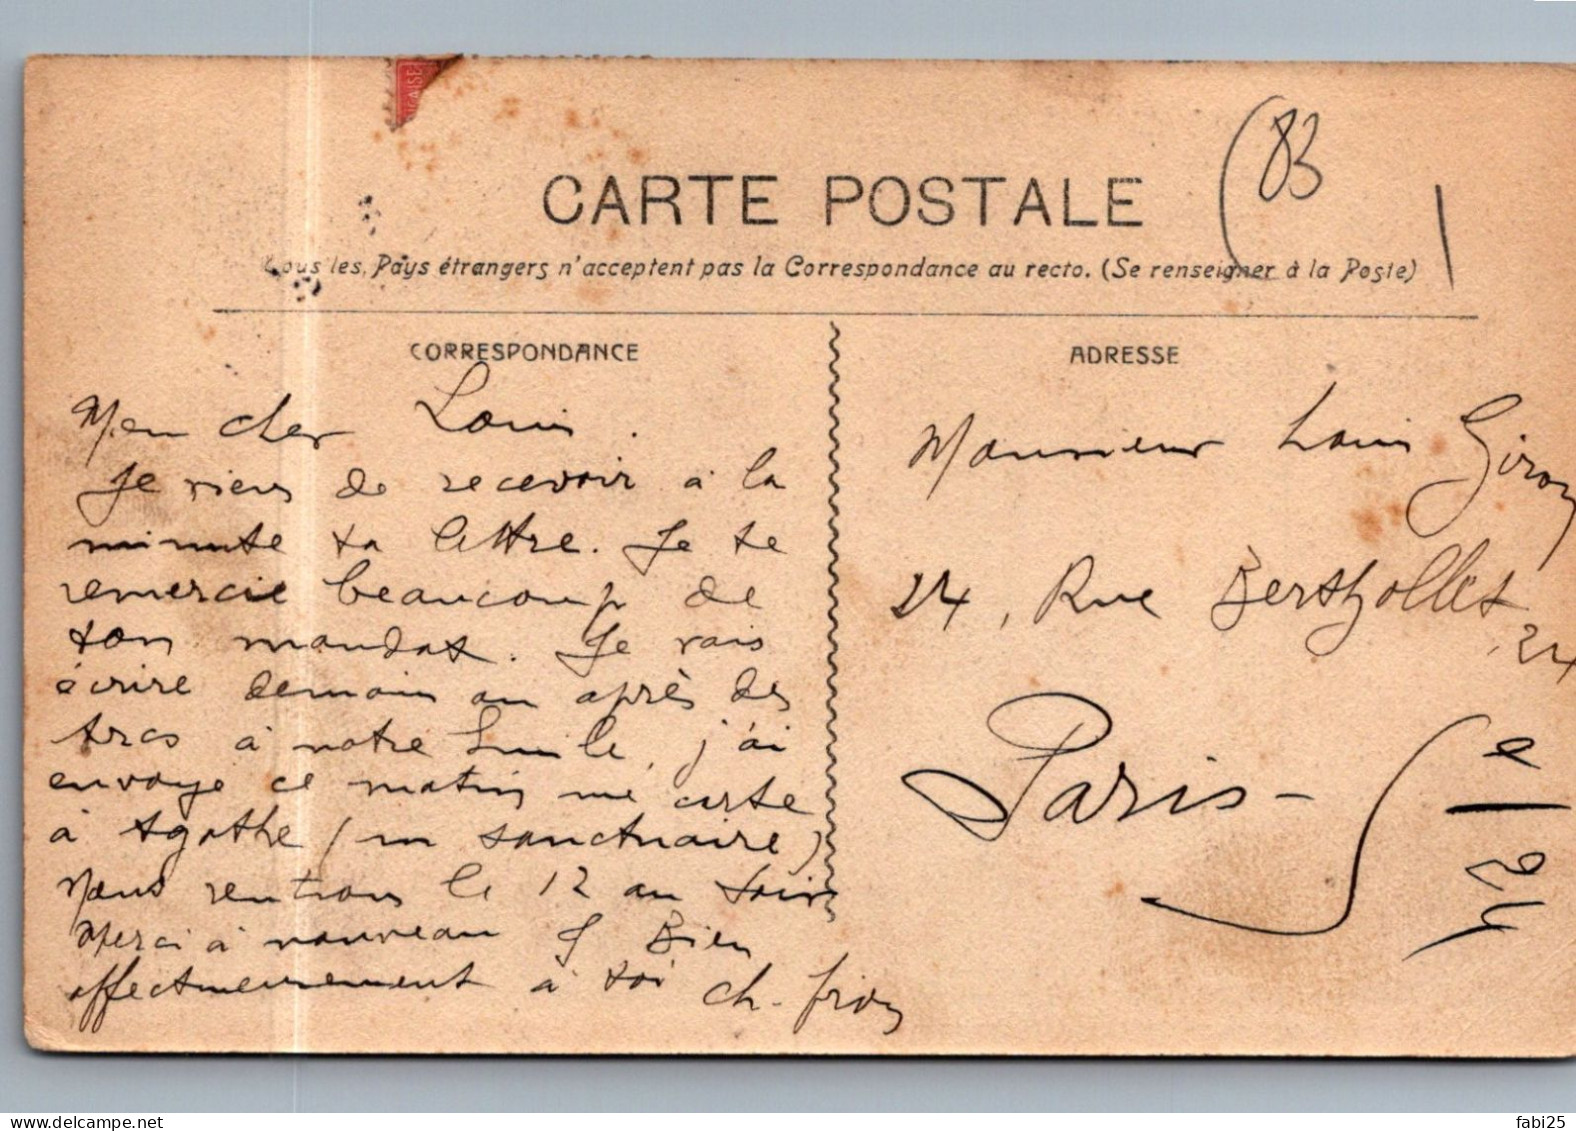 CAISE
CARTE POSTALE
(83
Tous les Pays étrangers n'acceptent pas la Correspondance au recto. (Se renseigner à la Poste)
CORRESPONDANCE
Mon cher Louis.
Je viens de recevoir à la
minute ta lettre. Je te
remercie beaucoup de
ton mandat. Je vais
écrire demain ou après des
à notre Emile, j'ai
envoyé ce matin une carte
à Agathe (un sanctuaire)
Nous rentrons le 12 au soir
Merci à nouveau & Bien
affectueusement à toi Ch.
ADRESSE
Monsieur Louis Giron
24, Rue Berthollet
, 24
Paris - 5e
fabi25